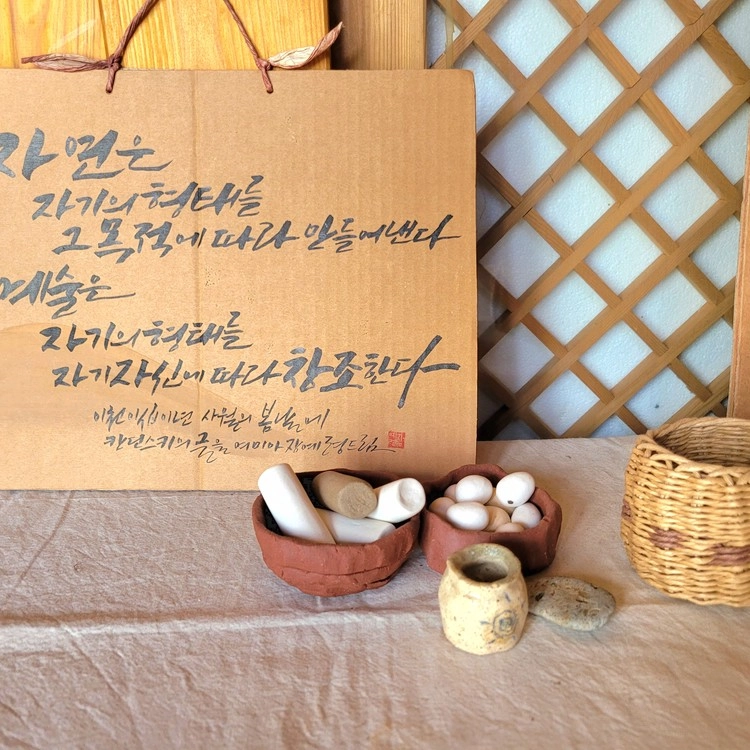 자연은
자기의 형태를
그 목적에 따라 만들어낸다
예술은
자기의 형태를
자기 자신에 따라 창조한다
이천이십이년 사월의 봄날에
칸딘스키의 글을 여미아 드림